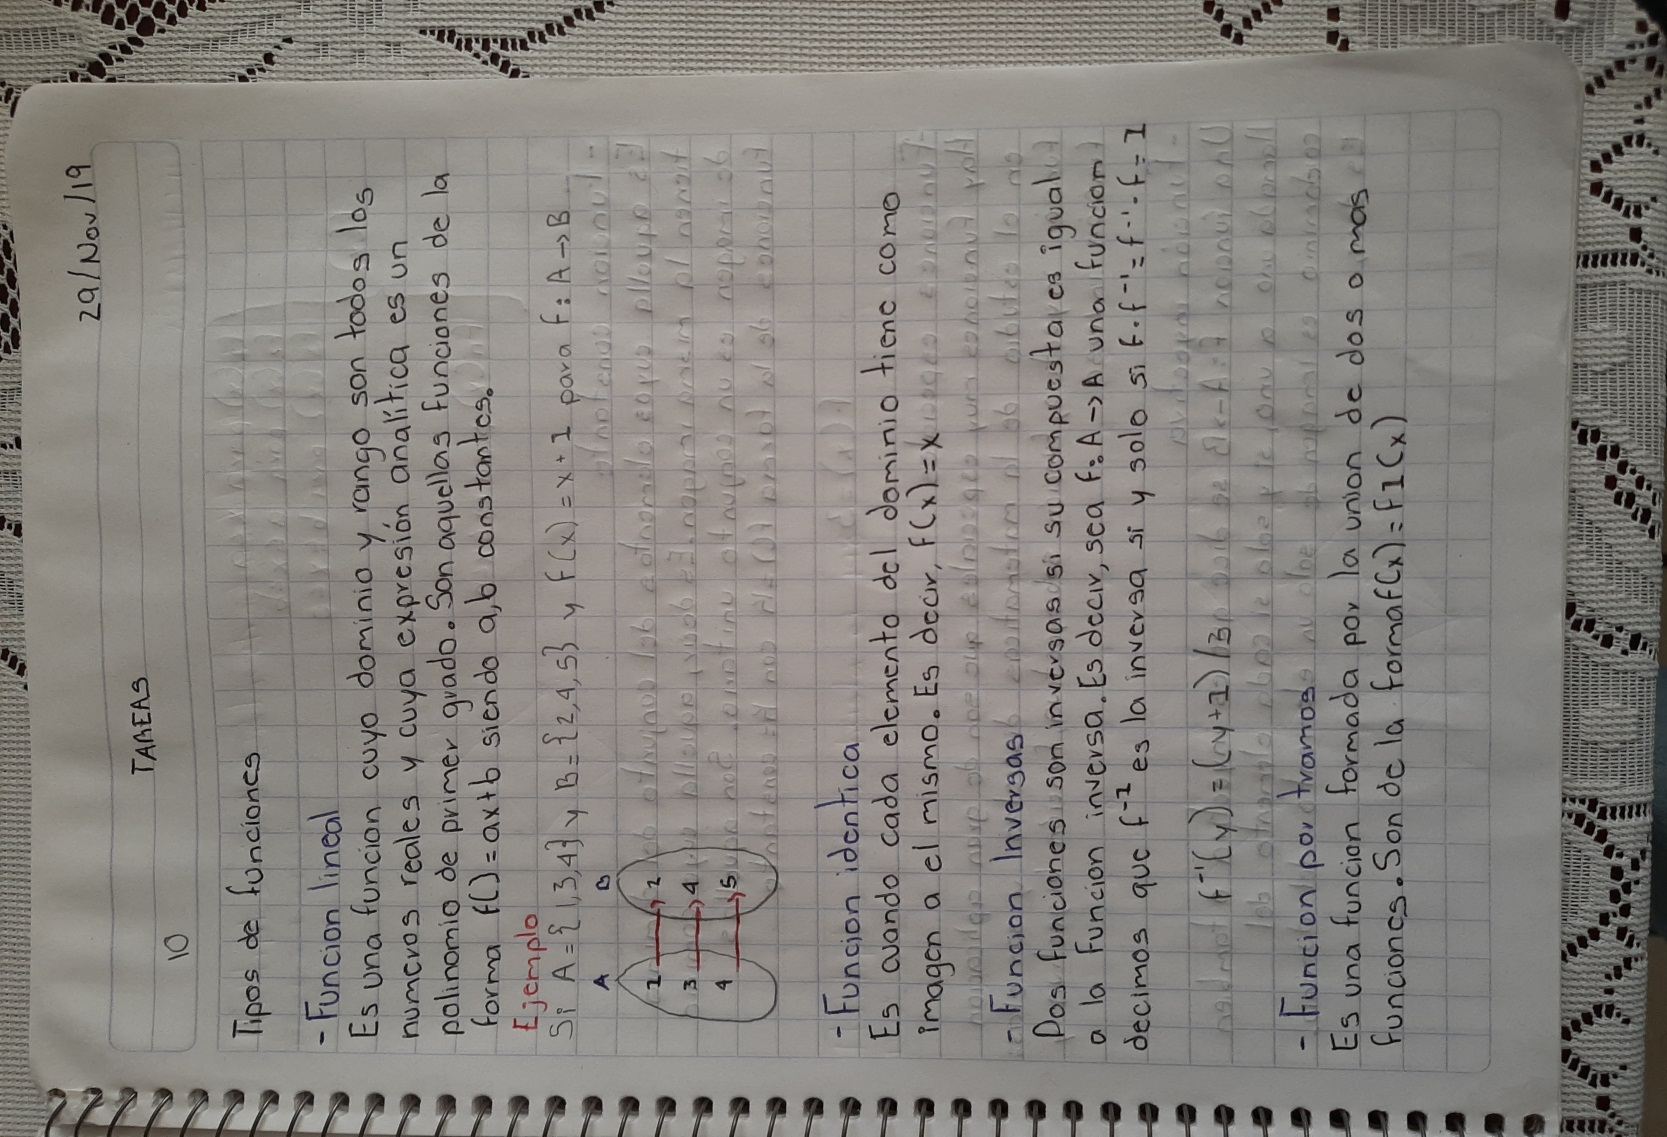 29/Nov/19
TAREAS
10
Tipos de funciones
- Funcion lineal
Es una funcion cuyo dominio y rango son todos los
numeros reales y cuya expresión analítica es un
polinomio de primer grado. Son aquellas funciones de la
forma f() = ax+b siendo a,b constantes.
Ejemplo
Si A={1,3,4} y B={2,4,5} y f(x)=x+1 para f:A→B
A B
2 → 2
3 → 4
4 → 5
- Funcion identica
Es cuando cada elemento del dominio tiene como
imagen a el mismo. Es decir, f(x)=x
- Funcion Inversas
Dos funciones son inversas si su compuesta es igual
a la funcion inversa. Es decir, sea f:A→A una funcion
decimos que f⁻¹ es la inversa si y solo si f·f⁻¹=f⁻¹·f=1
f⁻¹(y)=(y+1)/3
- Funcion por tramos
Es una funcion formada por la union de dos o mas
funciones. Son de la forma f(x)=f1(x)